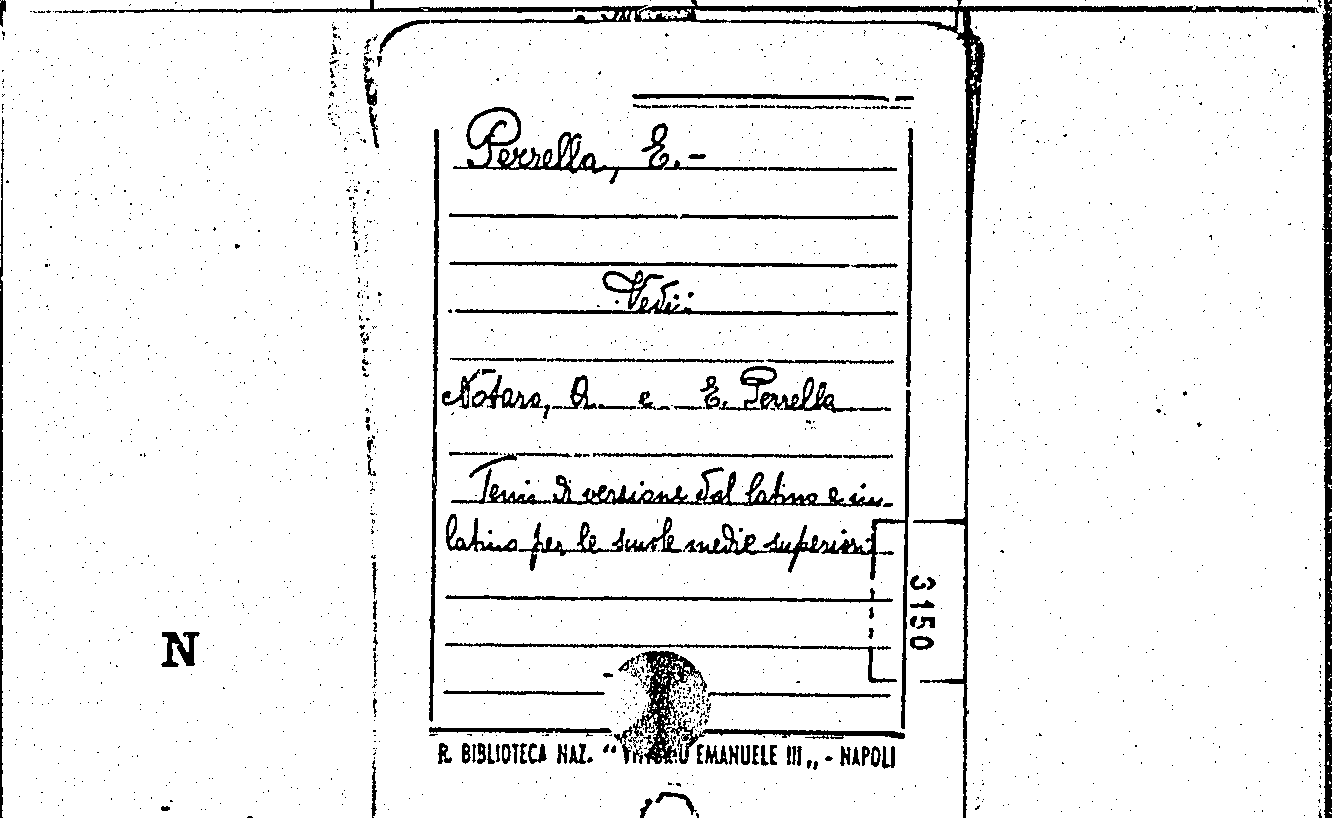 Perrella, E.-
Vedi:
Notaro, A. e E. Perrella
Temi di versione dal latino e in
latino per le scuole medie superiori
3150
N
R. BIBLIOTECA NAZ. “ VITTORIO EMANUELE III „ - NAPOLI